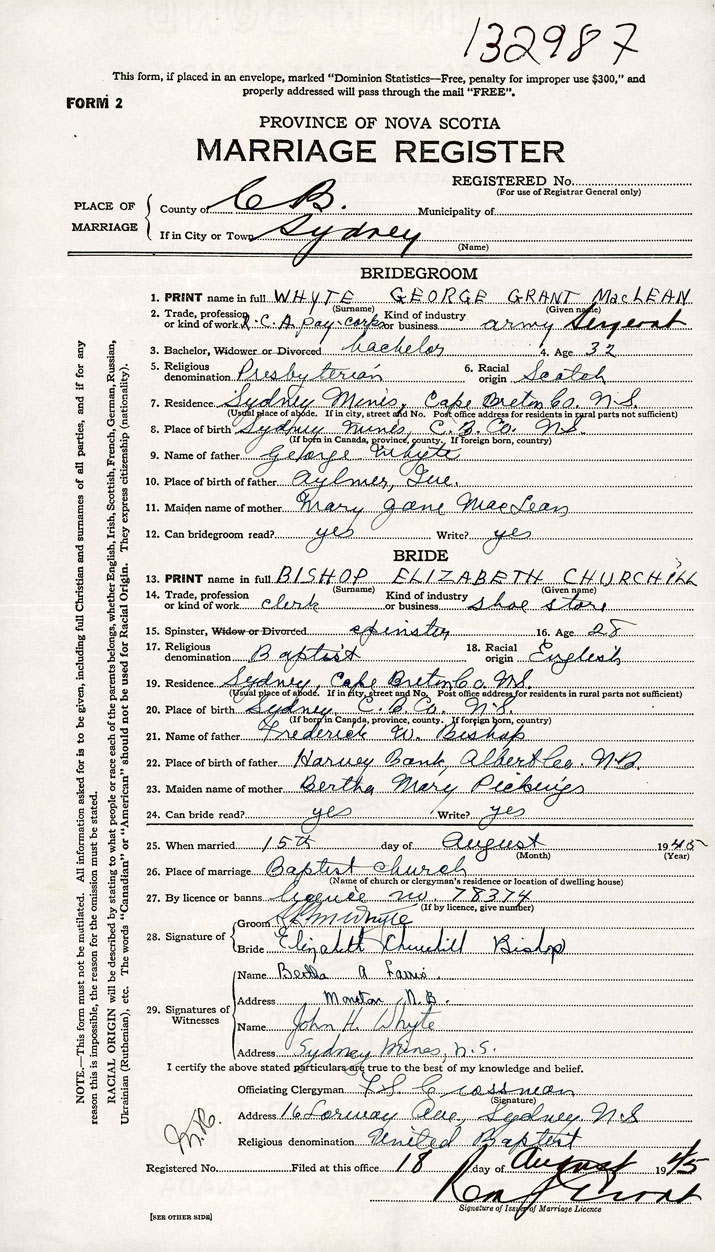 132987
This form, if placed in an envelope, marked "Dominion Statistics—Free, penalty for improper use $300," and
properly addressed will pass through the mail "FREE".
FORM 2
PROVINCE OF NOVA SCOTIA
MARRIAGE REGISTER
REGISTERED No.
(For use of Registrar General only)
PLACE OF MARRIAGE
County of C B. Municipality of
If in City or Town Sydney
(Name)
BRIDEGROOM
1. PRINT name in full WHYTE GEORGE GRANT MacLEAN
(Surname) (Given name)
2. Trade, profession or kind of work R.C.A pay-corps Kind of industry or business army Sergeant
3. Bachelor, Widower or Divorced bachelor 4. Age 32
5. Religious denomination Presbyterian 6. Racial origin Scotch
7. Residence Sydney Mines, Cape Breton Co. N.S.
(Usual place of abode. If in city, street and No. Post office address for residents in rural parts not sufficient)
8. Place of birth Sydney Mines, C.B. Co. N.S.
(If born in Canada, province, county. If foreign born, country)
9. Name of father George Whyte
10. Place of birth of father Aylmer, Que.
11. Maiden name of mother Mary Jane MacLean
12. Can bridegroom read? yes Write? yes
BRIDE
13. PRINT name in full BISHOP ELIZABETH CHURCHILL
(Surname) (Given name)
14. Trade, profession or kind of work clerk Kind of industry or business shoe store
15. Spinster, Widow or Divorced spinster 16. Age 28
17. Religious denomination Baptist 18. Racial origin English
19. Residence Sydney, Cape Breton Co. N.S.
(Usual place of abode. If in city, street and No. Post office address for residents in rural parts not sufficient)
20. Place of birth Sydney C.B. Co. N.S.
(If born in Canada, province, county. If foreign born, country)
21. Name of father Frederick W. Bishop
22. Place of birth of father Harvey Bank, Albert Co. N.B.
23. Maiden name of mother Bertha Mary
24. Can bride read? yes Write? yes
25. When married 15th day of August 1945
(Month) (Year)
26. Place of marriage Baptist church
(Name of church or clergyman's residence or location of dwelling house)
27. By licence or banns licence no. 78374
(If by licence, give number)
28. Signature of
Groom Whyte
Bride Elizabeth Churchill Bishop
29. Signatures of Witnesses
Name Bertha A
Address Moncton N.B.
Name John H. Whyte
Address Sydney Mines, N.S.
I certify the above stated particulars are true to the best of my knowledge and belief.
Officiating Clergyman Crossman
(Signature)
Address 16 Lorway Ave., Sydney N.S
Religious denomination United Baptist
Registered No. Filed at this office 18 day of August 1945
Signature of Issuer of Marriage Licence
[SEE OTHER SIDE]
NOTE.—This form must not be mutilated. All information asked for is to be given, including full Christian and surnames of all parties, and if for any
reason this is impossible, the reason for the omission must be stated.
RACIAL ORIGIN will be described by stating to what people or race each of the parents belongs, whether English, Irish, Scottish, French, German, Russian,
Ukrainian (Ruthenian), etc. The words "Canadian" or "American" should not be used for Racial Origin. They express citizenship (nationality).